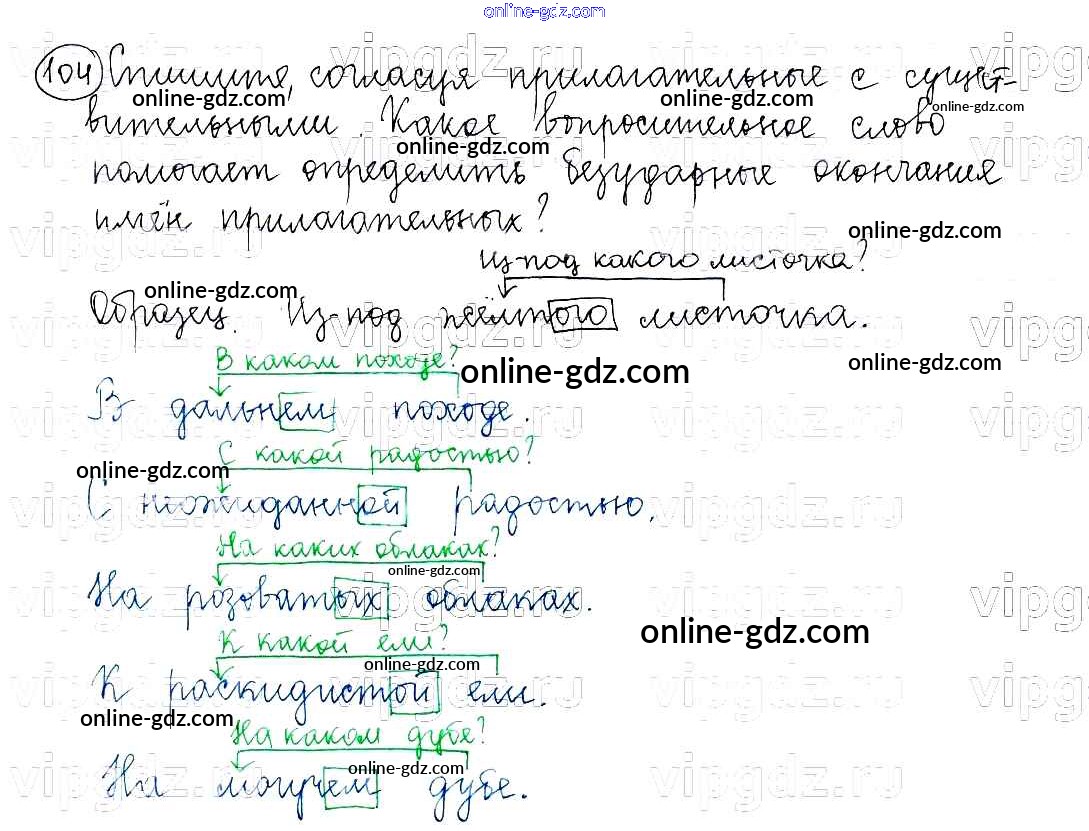 online-gdz.com
104 Спишите, согласуя прилагательные с сущест-
online-gdz.com online-gdz.com online-gdz.com
вительными. Какое вопросительное слово
online-gdz.com
помогает определить безударные окончания
имён прилагательных?
online-gdz.com
Из-под какого листочка?
online-gdz.com
Образец. Из-под жёлтого листочка.
В каком походе?
online-gdz.com online-gdz.com
В дальнем походе.
С какой радостью?
online-gdz.com
С неожиданной радостью.
На каких облаках?
online-gdz.com
На розоватых облаках.
online-gdz.com
К какой ели?
online-gdz.com
К раскидистой ели.
online-gdz.com
На каком дубе?
online-gdz.com
На могучем дубе.
vipgdz.ru vipgdz.ru vipg
vipgdz.ru vipgdz.ru vipg
vipgdz.ru vipgdz.ru vipg
vipgdz.ru vipgdz.ru vipg
vipgdz.ru vipgdz.ru vipg
vipgdz.ru vipgdz.ru vipg
vipgdz.ru vipgdz.ru vipg
vipgdz.ru vipgdz.ru vipg
vipgdz.ru vipgdz.ru vipg